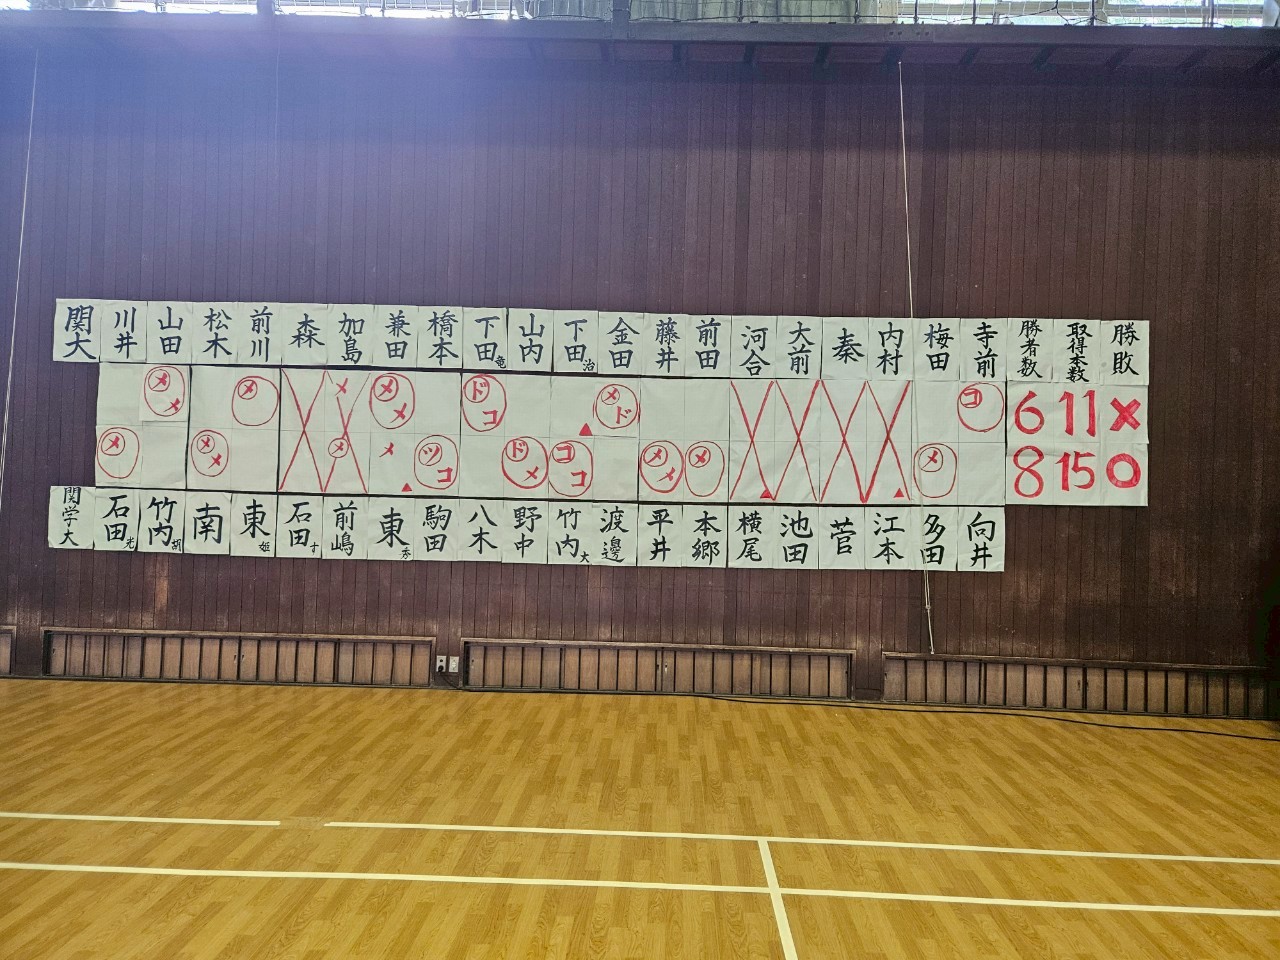 関大 川井 山田 松木 前川 森 加島 兼田 橋本 下田竜 山内 下田治 金田 藤井 前田 河合 大前 秦 内村 梅田 寺前 勝者数 取得本数 勝敗
メメ メ メ メメ ドコ メド コ 6 11 ×
メ メメ メ メ ツコ ドメ ココ メメ メ メ 8 15 ○
関学大 石田光 竹内 南 東姫 石田す 前嶋 東秀 駒田 八木 野中 竹内大 渡邊 平井 本郷 横尾 池田 菅 江本 多田 向井